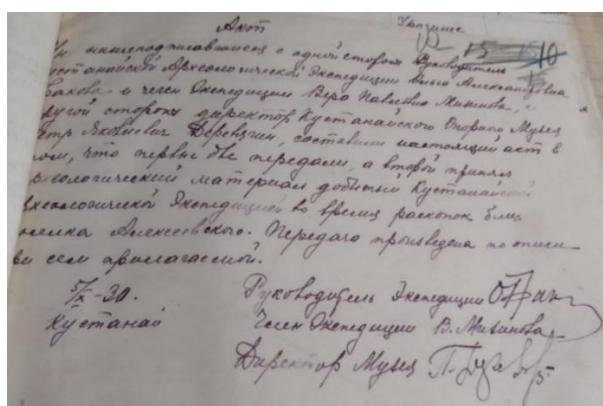 Акт
15 10
нижеподписавшиеся с одной стороны Руководитель
Археологической Экспедиции Ольга Александровна
и член Экспедиции Вера Павловна Мизинова, с
другой стороны директор Кустанайского Опорного Музея
Петр Яковлевич Деревягин, составили настоящий акт в
том, что первые две передали, а второй принял
археологический материал добытый Кустанайской
Археологической Экспедицией во время раскопок близ
поселка Алексеевского. Передача произведена по описи
при сем прилагаемой.
5/IX-30. Руководитель Экспедиции
Кустанай Член Экспедиции В. Мизинова
Директор Музея